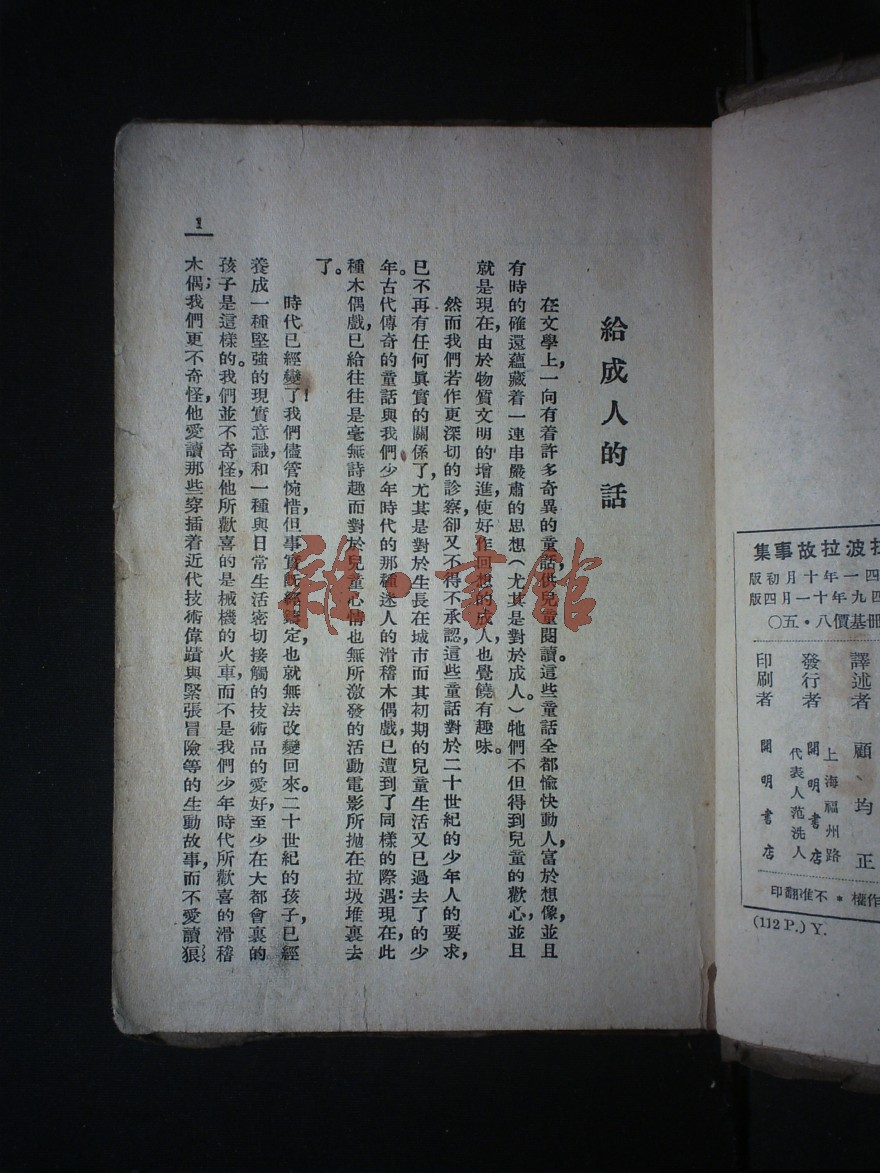 給成人的話
在文學上，一向有着許多奇異的童話，供兒童閱讀。這些童話全都愉快動人，富於想像，並且
有時的確還蘊藏着一連串嚴肅的思想（尤其是對於成人。）牠們不但得到兒童的歡心，並且
就是現在，由於物質文明的增進，使好作回想的成人，也覺饒有趣味。
然而我們若作更深切的診察，卻又不得不承認，這些童話對於二十世紀的少年人的要求，
已不再有任何眞實的關係了，尤其是對於生長在城市而其初期的兒童生活又已過去了的少
年。古代傳奇的童話與我們少年時代的那種迷人的滑稽木偶戲，已遭到了同樣的際遇：現在，此
種木偶戲，已給往往是毫無詩趣而對於兒童心情也無所激發的活動電影所拋在拉圾堆裏去
了。
時代已經變了！我們儘管惋惜，但事實既經鑄定，也就無法改變回來。二十世紀的孩子，已經
養成一種堅強的現實意識，和一種與日常生活密切接觸的技術品的愛好，至少在大都會裏的
孩子是這樣的。我們並不奇怪，他所歡喜的是械機的火車，而不是我們少年時代所歡喜的滑稽
木偶；我們更不奇怪，他愛讀那些穿插着近代技術偉蹟與緊張冒險等的生動故事，而不愛讀狠
1
拉波拉故事集
四一年十月初版
四九年十一月四版
冊基價八·五〇
譯述者 顧均正
發行者 開明書店
上海福州路
代表人范洗人
印刷者 開明書店
作權＊不准翻印
(112 P.) Y.
雜·書館